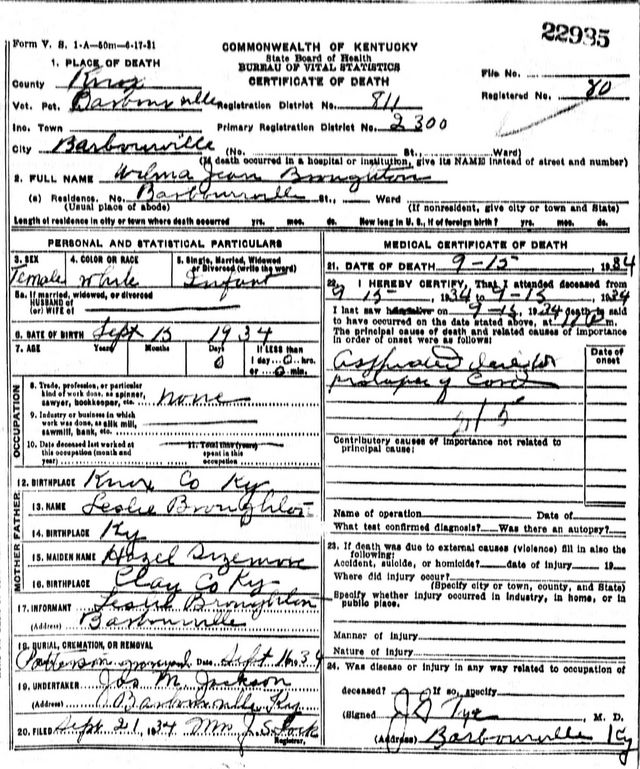 22935
Form V. S. 1-A—50m—6-17-31
COMMONWEALTH OF KENTUCKY
State Board of Health
BUREAU OF VITAL STATISTICS
CERTIFICATE OF DEATH
File No.
Registered No. 80
1. PLACE OF DEATH
County Knox
Vot. Pct. Barbourville Registration District No. 811
Inc. Town Primary Registration District No. 2300
City Barbourville (No. St., Ward)
(If death occurred in a hospital or institution, give its NAME instead of street and number)
2. FULL NAME Wilma Jean Broughton
(a) Residence. No. Barbourville St., Ward
(Usual place of abode) (If nonresident, give city or town and State)
Length of residence in city or town where death occurred yrs. mos. ds. How long in U. S., if of foreign birth? yrs. mos. ds.
PERSONAL AND STATISTICAL PARTICULARS
3. SEX 4. COLOR OR RACE 5. Single, Married, Widowed or Divorced (write the word)
Female White Infant
5a. If married, widowed, or divorced
HUSBAND of
(or) WIFE of
6. DATE OF BIRTH Sept 15 1934
7. AGE Years Months Days If LESS than
0 1 day 0 hrs.
or 0 min.
OCCUPATION
8. Trade, profession, or particular
kind of work done, as spinner,
sawyer, bookkeeper, etc. none
9. Industry or business in which
work was done, as silk mill,
sawmill, bank, etc.
10. Date deceased last worked at
this occupation (month and
year)
11. Total time (years)
spent in this
occupation
12. BIRTHPLACE Knox Co Ky
FATHER
13. NAME Leslie Broughton
14. BIRTHPLACE Ky
MOTHER
15. MAIDEN NAME Hazel Sizemore
16. BIRTHPLACE Clay Co Ky
17. INFORMANT Leslie Broughton
(Address) Barbourville
18. BURIAL, CREMATION, OR REMOVAL
Patterson graveyard Date Sept 16 1934
19. UNDERTAKER Jas M. Jackson
(Address) Barbourville Ky
20. FILED Sept 21, 1934 Mrs J. S.
Registrar.
MEDICAL CERTIFICATE OF DEATH
21. DATE OF DEATH 9-15, 1934
22. I HEREBY CERTIFY, That I attended deceased from
9 15, 1934 to 9-15, 1934
I last saw alive on 9-15, 1934 death is said
to have occurred on the date stated above, at m.
The principal cause of death and related causes of importance
in order of onset were as follows:
Date of onset
prolapse of Cord
Contributory causes of importance not related to
principal cause:
Name of operation Date of
What test confirmed diagnosis? Was there an autopsy?
23. If death was due to external causes (violence) fill in also the
following:
Accident, suicide, or homicide? date of injury 19
Where did injury occur?
(Specify city or town, county, and State)
Specify whether injury occurred in industry, in home, or in
public place.
Manner of injury
Nature of injury
24. Was disease or injury in any way related to occupation of
deceased? If so, specify
(Signed) J. G. Tye M. D.
(Address) Barbourville Ky